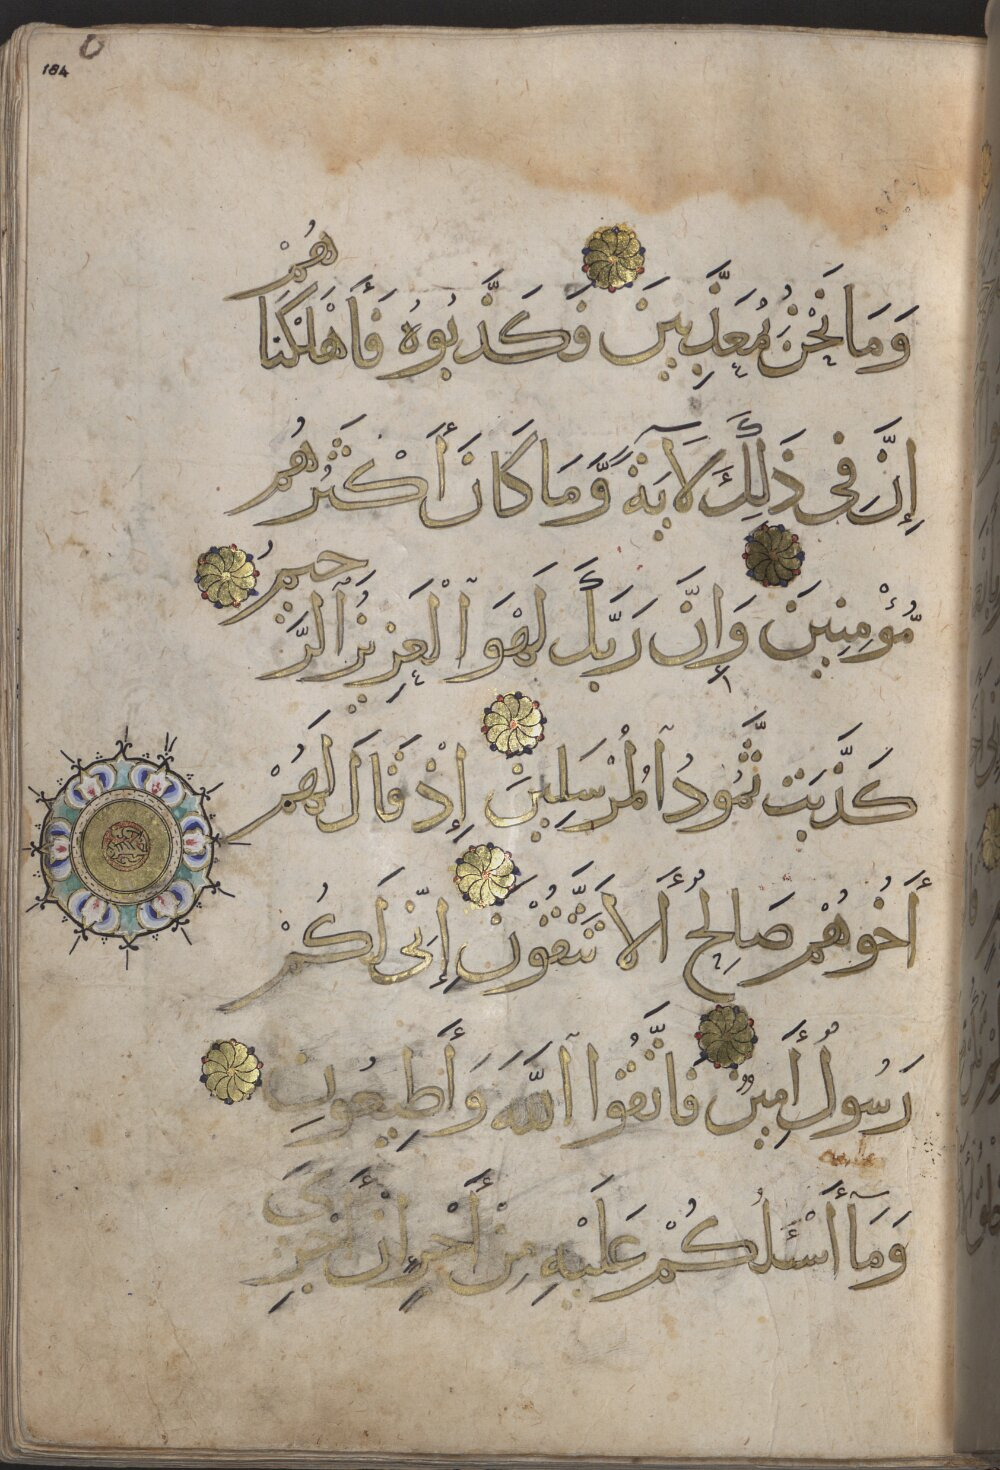 184
وَمَا نَحْنُ بِمُعَذَّبِينَ فَكَذَّبُوهُ فَأَهْلَكْنَا
هُمْ
إِنَّ فِى ذَلِكَ لَآيَةً وَّمَا كَانَ أَكْثَرُهُمْ
مُّؤْمِنِينَ وَإِنَّ رَبَّكَ لَهْوَ ٱلْعَزِيزُ ٱلرَّ
حِيمُ
كَذَّبَتْ ثَّمُودُ ٱلْمُرْسَلِينَ إِذْ قَالَ لَهُمْ
أَخُوهُمْ صَالِحٌ أَلَا تَتَّقُونَ إِنِّى لَكُمْ
رَسُولٌ أَمِينٌ فَاتَّقُوا ٱللَّهَ وَأَطِيعُونِ
وَمَآ أَسْـَٔلُكُمْ عَلَيْهِ مِنْ أَجْرٍ إِنْ أَجْرِ
ىَ